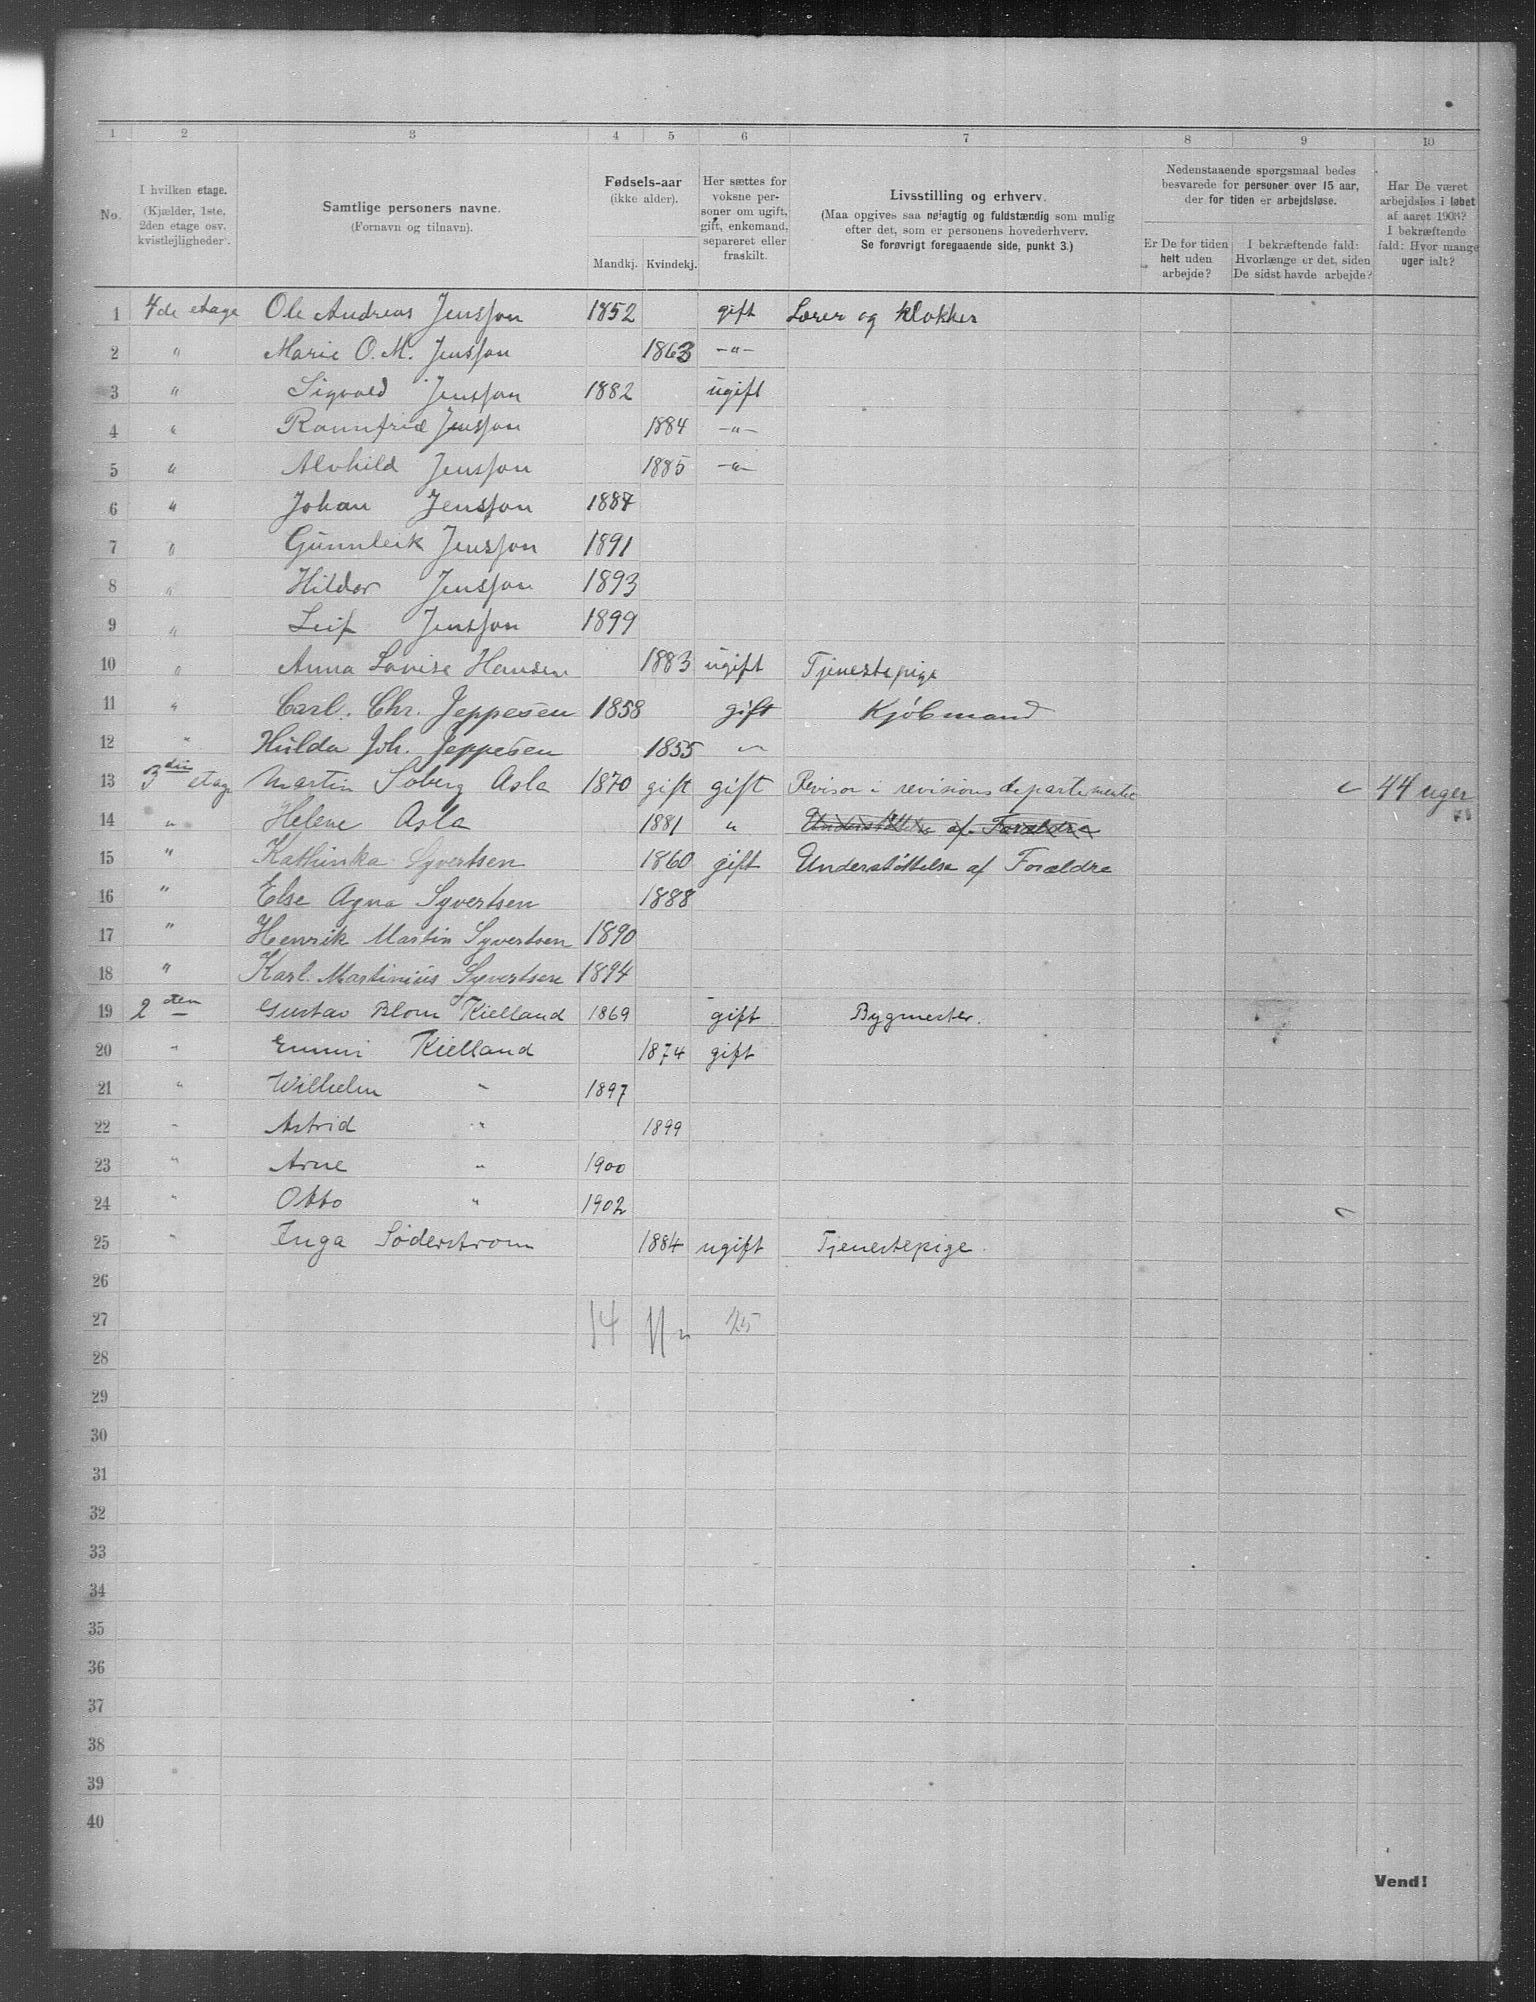 1 2 3 4 5 6 7 8 9 10
No.
I hvilken etage.
(Kjælder, 1ste,
2den etage osv.
kvistlejligheder.
Samtlige personers navne.
(Fornavn og tilnavn).
Fødsels-aar
(ikke alder).
Mandkj. Kvindekj.
Her sættes for
voksne per-
soner om ugift,
gift, enkemand,
separeret eller
fraskilt.
Livsstilling og erhverv.
(Maa opgives saa nøjagtig og fuldstændig som mulig
efter det, som er personens hovederhverv.
Se forøvrigt foregaaende side, punkt 3.)
Nedenstaaende spørgsmaal bedes
besvarede for personer over 15 aar,
der for tiden er arbejdsløse.
Er De for tiden
helt uden
arbejde?
I bekræftende fald:
Hvorlænge er det, siden
De sidst havde arbejde?
Har De været
arbejdsløs i løbet
af aaret 1903?
I bekræftende
fald: Hvor mange
uger ialt?
1 4de etage Ole Andreas Jensson 1852 gift Lærer og klokker
2 " Marie O. M. Jensson 1863 -"-
3 " Sigvald Jensson 1882 ugift
4 " Rannfrid Jensson 1884 -"-
5 " Alvhild Jensson 1885 -"-
6 " Johan Jensson 1887
7 " Gunnleik Jensson 1891
8 " Hildor Jensson 1893
9 " Leif Jensson 1899
10 " Anna Lovise Hansen 1883 ugift Tjenestepige
11 " Carl. Chr. Jeppesen 1858 gift Kjøbmand
12 " Hulda Joh. Jeppesen 1855 "
13 3die etage Martin Soberg Asla 1870 gift gift Revisor i revisionsdepartementet 44 uger
14 " Helene Asla 1881 " Understøttelse af Forældre
15 " Kathinka Syvertsen 1860 gift Understøttelse af Forældre
16 " Else Agna Syvertsen 1888
17 " Henrik Martin Syvertsen 1890
18 " Karl. Martinius Syvertsen 1894
19 2den Gustav Blom Kielland 1869 gift Bygmester.
20 " Emmi Kielland 1874 gift
21 " Wilhelm " 1897
22 " Astrid " 1899
23 " Arne " 1900
24 " Otto " 1902
25 " Inga Söderstrom 1884 ugift Tjenestepige.
26
27 14 11 25
28
29
30
31
32
33
34
35
36
37
38
39
40
Vend!